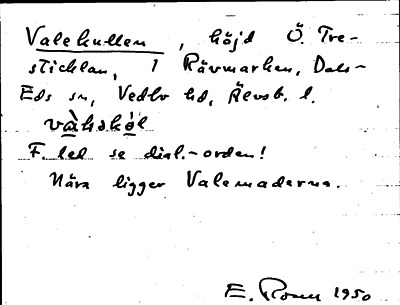 Valekullen, höjd Ö. Tre-
sticklan, i Rävmarken, Dals-
Eds sn, Vedbo hd, Älvsb. l.
F. led se dial.-orden!
Nära ligger Valemaderna.
E. 1950